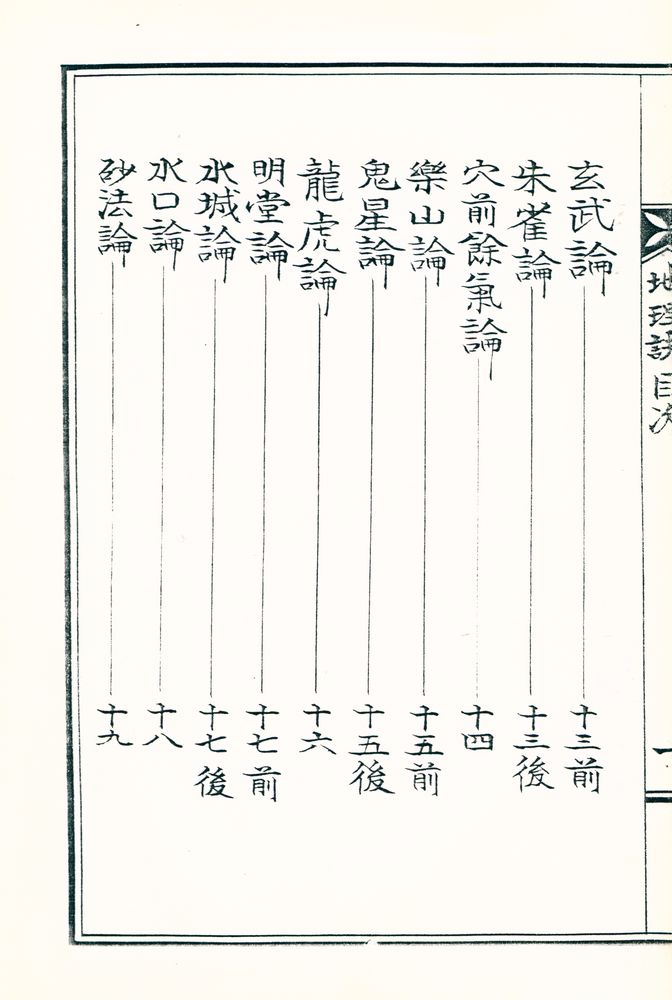 地理訣目次
一
玄武論 十三前
朱雀論 十三後
穴前餘氣論 十四
樂山論 十五前
鬼星論 十五後
龍虎論 十六
明堂論 十七前
水城論 十七後
水口論 十八
砂法論 十九